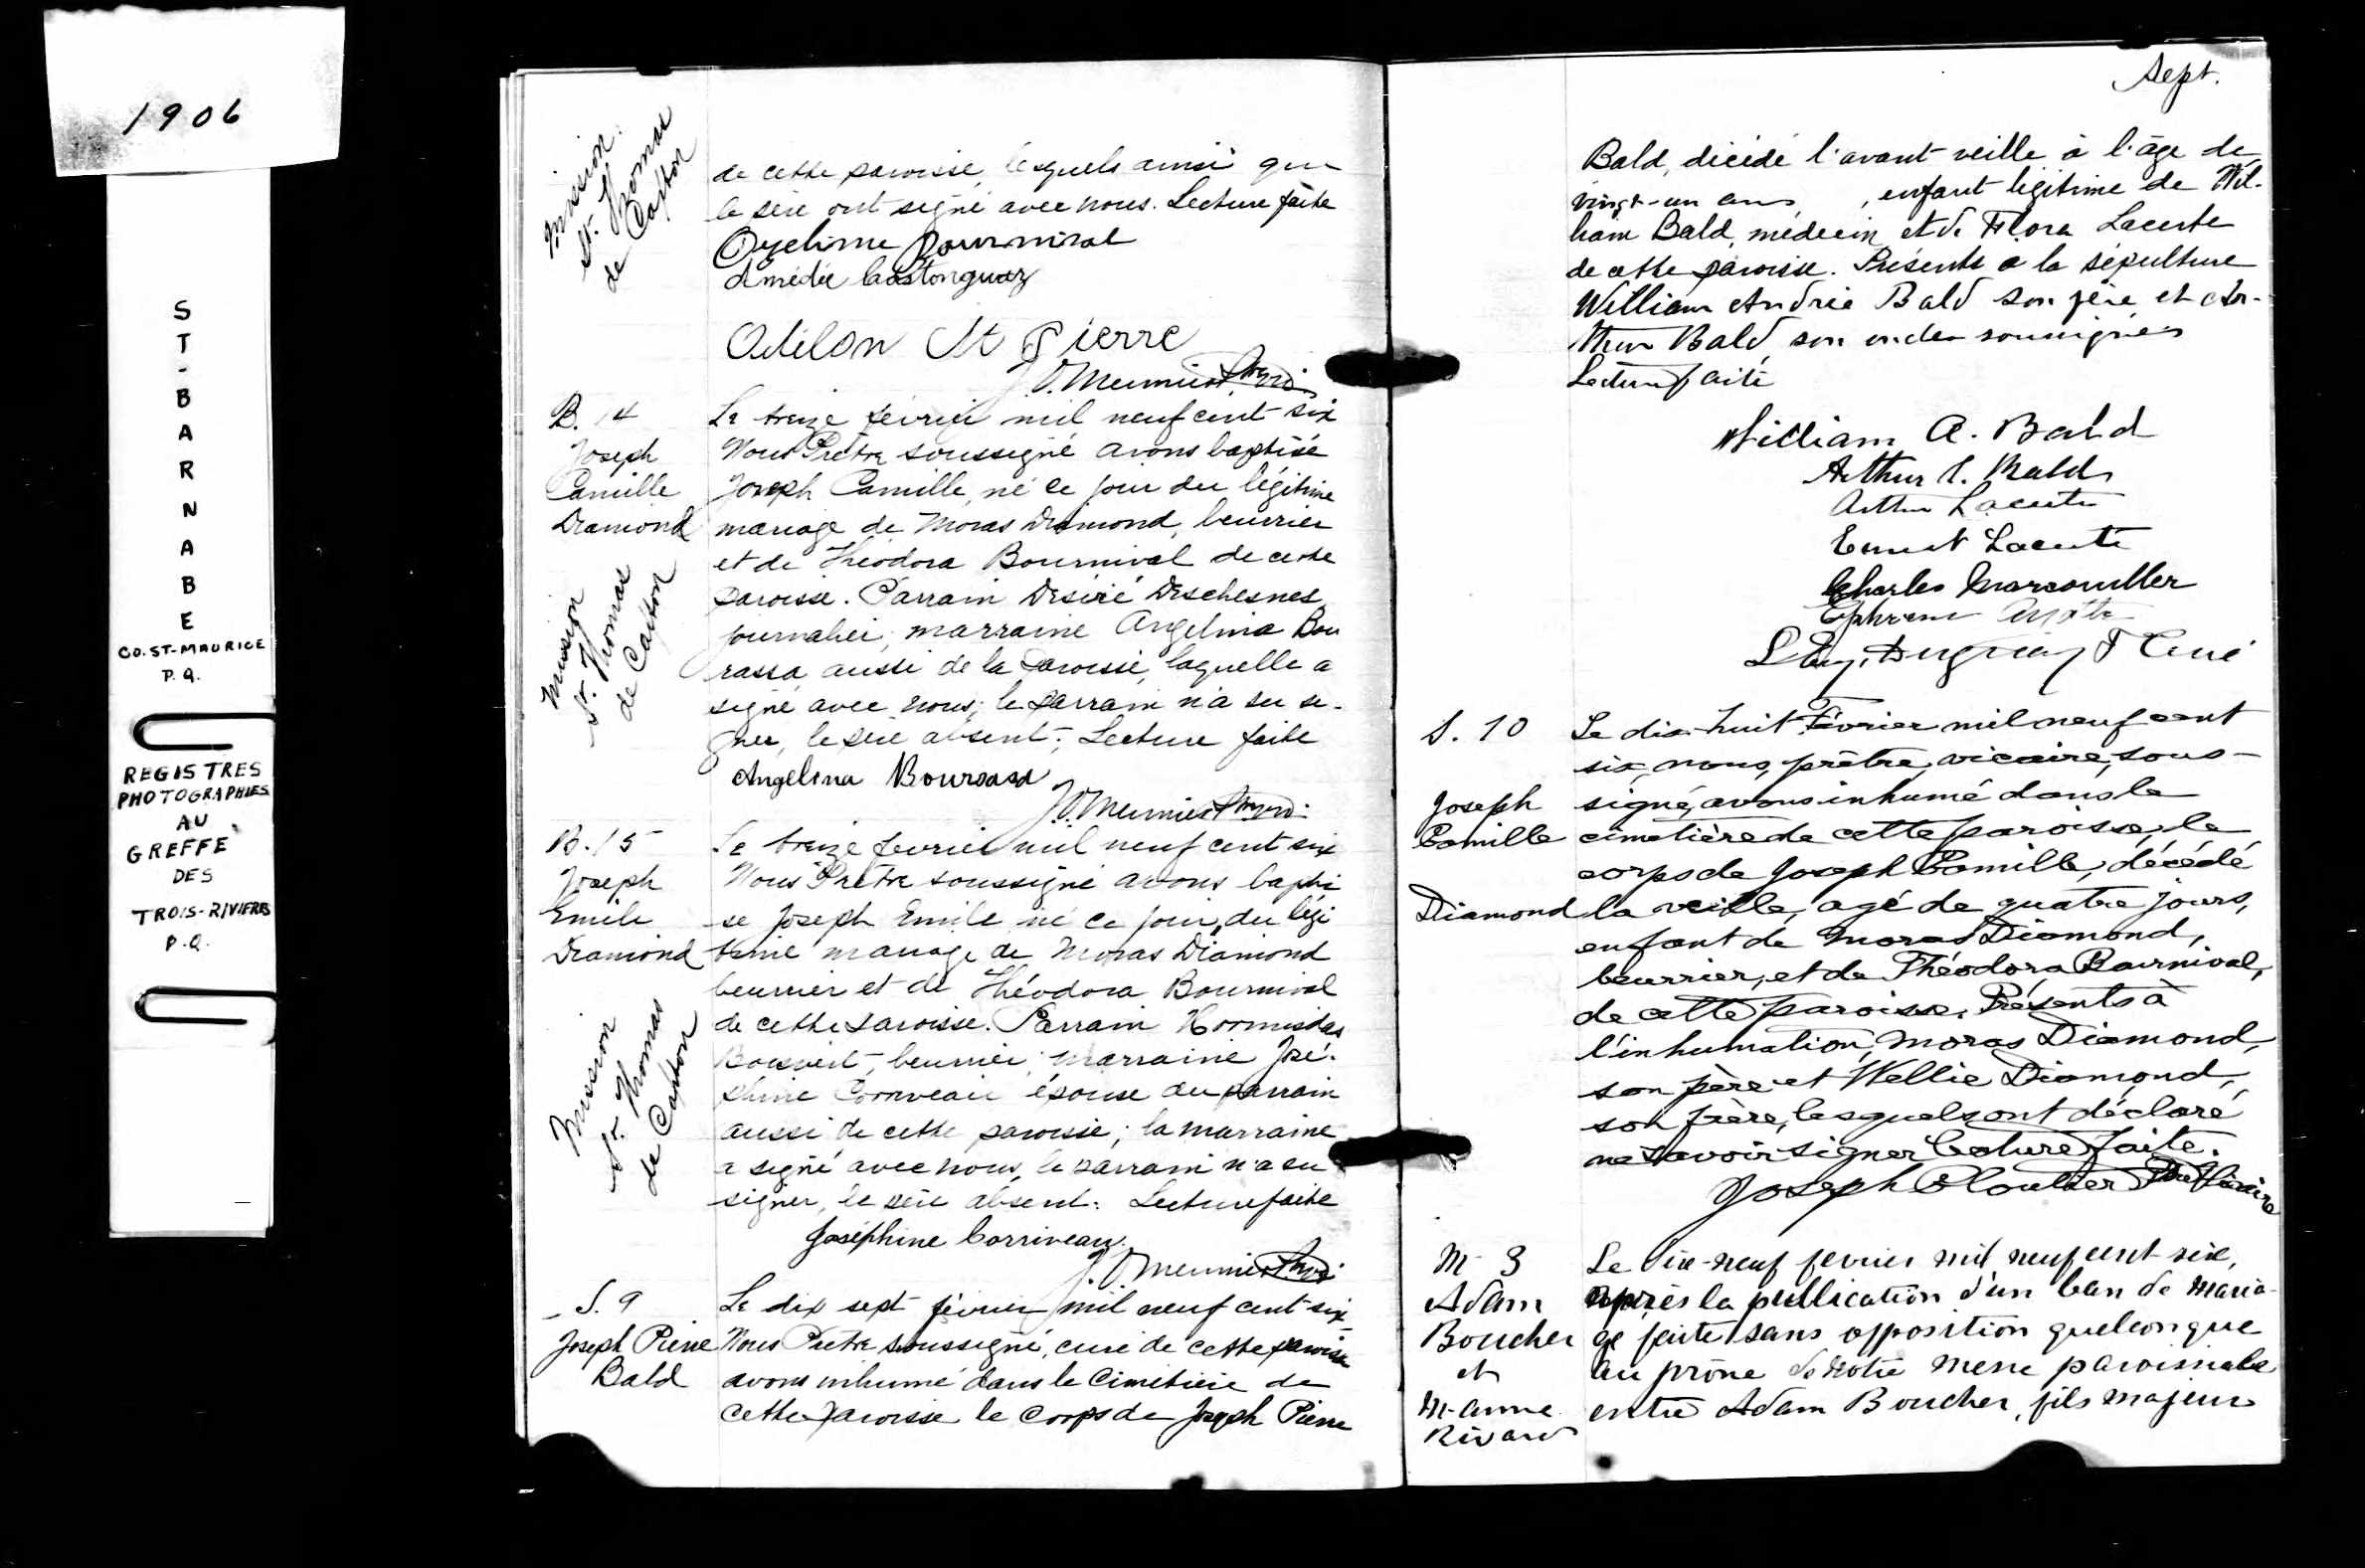 1906
S
T
-
B
A
R
N
A
B
E
CO. ST-MAURICE
P.Q.
REGISTRES
PHOTOGRAPHIES
AU
GREFFE
DES
TROIS-RIVIERES
P.Q.
Mission
St. Thomas
de Caxton
de cette paroisse, lesquels ainsi que
le père ont signé avec nous. Lecture faite
Bournival
Amédée Lacstonguay
Odilon St Pierre
J.O. Meunier Ptre
B. 14
Joseph
Camille
Diamond
Mission
St. Thomas
de Caxton
Le treize février mil neuf cent six
Nous Prêtre soussigné avons baptisé
Joseph Camille, né ce jour du légitime
mariage de Moras Diamond, beurrier
et de Théodora Bournival de cette
paroisse. Parrain Désiré Deschesnes
journalier, marraine Angelina Bou
rassa aussi de la paroisse, laquelle a
signé avec nous; le parrain n'a su si-
gner, le père absent; Lecture faite
Angelina Bourassa
J.O. Meunier Ptre
B. 15
Joseph
Emile
Diamond
Mission
St. Thomas
de Caxton
Le treize fevrier mil neuf cent six
Nous Prêtre soussigné avons bapti
sé Joseph Emile né ce jour, du légi
time mariage de Moras Diamond
beurrier et de Théodora Bournival
de cette paroisse. Parrain Hormisdas
Boisvert, beurrier; marraine José-
phine Corriveau épouse du parrain
aussi de cette paroisse; la marraine
a signé avec nous, le parrain n'a su
signer, le père absent: Lecture faite
Joséphine Corriveau.
J.O. Meunier Ptre
S. 9
Joseph Pierre
Bald
Le dix sept février mil neuf cent six
Nous Prêtre soussigné, curé de cette paroisse
avons inhumé dans le Cimetière de
cette paroisse le corps de Joseph Pierre
Sept.
Bald, décédé l'avant veille à l'âge de
vingt-un ans, enfant légitime de Wil-
liam Bald, médecin et de Flora Lacerte
de cette paroisse. Présents à la sépulture
William Andrie Bald son père et Ar-
thur Bald, son oncle soussignés
Lecture faite
William A. Bald
Arthur Bald
Arthur Lacerte
Ernest Lacerte
Charles Marcouiller
Ephrem
Duguay Ptre Curé
S. 10
Joseph
Camille
Diamond
Le dix-huit Février mil neuf cent
six, nous, prêtre, vicaire, sous-
signé, avons inhumé dans le
cimetière de cette paroisse, le
corps de Joseph Camille, décédé
la veille, agé de quatre jours,
enfant de Moras Diamond,
beurrier, et de Théodora Bournival,
de cette paroisse. Présents à
l'inhumation, Moras Diamond,
son père et Wellie Diamond,
son frère, lesquels ont déclaré
ne savoir signer Lecture faite.
Joseph Cloutier Ptre Vicaire
M- 3
Adam
Boucher
et
M-anne
Rivard
Le dix-neuf fevrier mil neuf cent six,
après la publication d'un ban de maria-
ge faite sans opposition quelconque
au prône de notre messe paroissiale
entre Adam Boucher, fils majeur